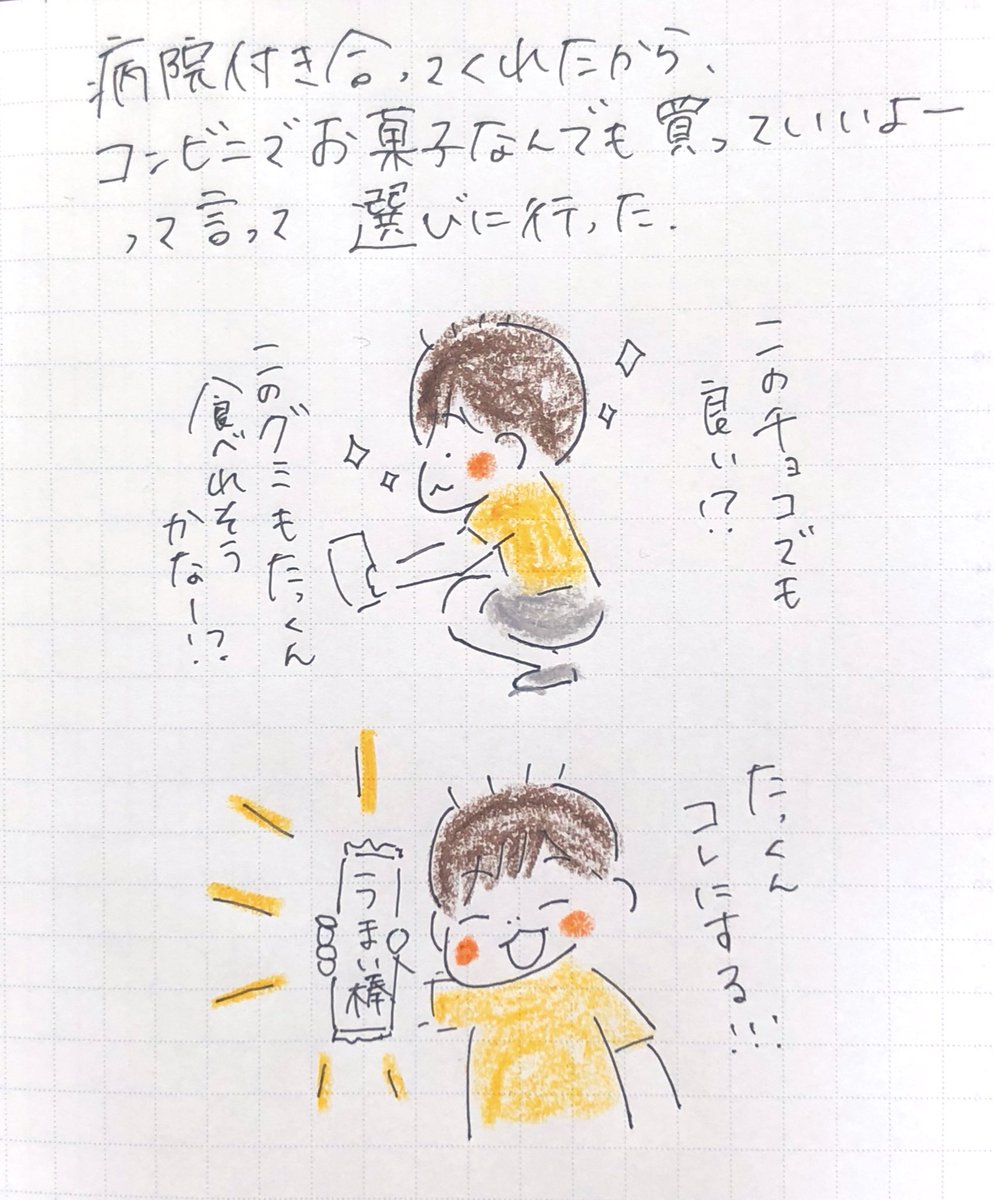 病院付き合ってくれたから、
コンビニでお菓子なんでも買っていいよー
って言って 選びに行った.
このチョコでも
良い!?
このグミもたっくん
食べれそう
かなー!?
たっくん
コレにする!!!
うまい棒